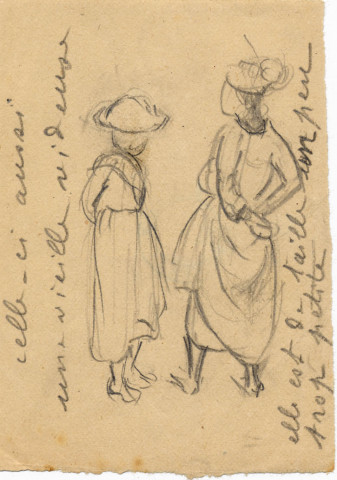 celle-ci aussi
une vieille vidense
elle est de taille un peu
trop petite